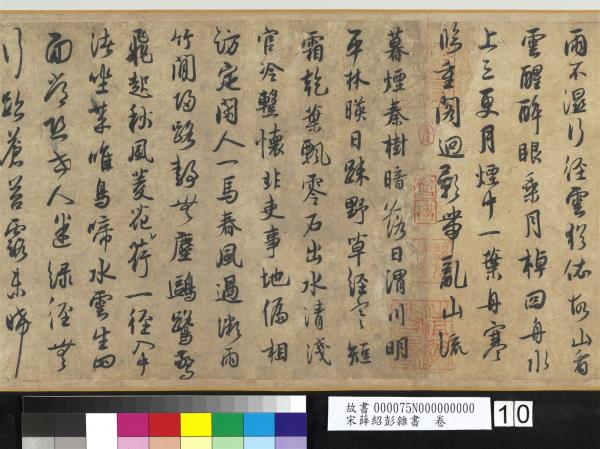 雨不濕行徑雲猶依故山看
雲醒醉眼乘月棹回舟水
上三更月煙中一葉舟寒
臨重閣迥影帶亂山流
暮煙秦樹暗落日渭川明
平林暎日疎野草經寒短
霜乾葉飄零石出水清淺
官冷整懷非吏事地偏相
訪定閑人一馬春風過微雨
竹間歸路静無塵鷗鷺驚
飛起秋風菱花荷一徑入
坐葉唯鳥啼水雲生四
面人迷綠徑無
行跡蒼苔露未晞
故書 000075N000000000
宋薛紹彭雜書 卷
10